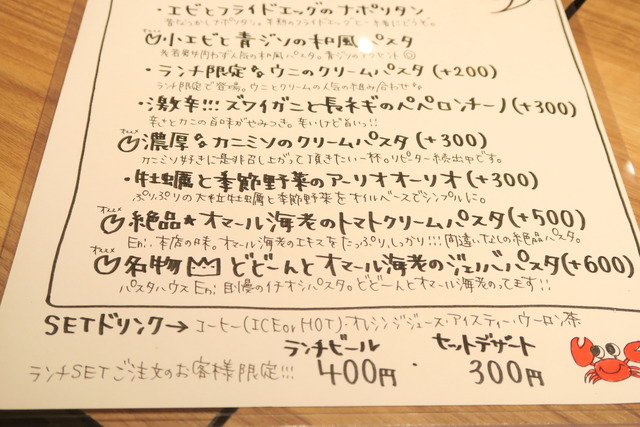 ・エビとフライドエッグのナポリタン
昔なつかしナポリタン。半熟のフライドエッグと一緒にどうぞ。
オススメ 小エビと青ジソの和風パスタ
老若男女問わず人気の和風パスタ。青ジソのアクセント☺
・ランチ限定なウニのクリームパスタ(+200)
ランチ限定で登場。ウニとクリームの人気の組み合わせな
・激辛!!! ズワイガニと長ネギのペペロンチーノ(+300)
辛さとカニの旨味がやみつき。辛いけど旨いっ!!
オススメ 濃厚なカニミソのクリームパスタ(+300)
カニミソ好きに是非召し上がって頂きたい一杯。リピーター続出中です。
・牡蠣と季節野菜のアーリオオーリオ(+300)
ぷりぷりの大粒牡蠣と季節野菜をオイルベースでシンプルに。
オススメ 絶品★オマール海老のトマトクリームパスタ(+500)
En: 本店の味。オマール海老のエキスをたっぷり、しっかり!!! 間違いなしの絶品パスタ。
オススメ 名物 どどーんとオマール海老のジェノバパスタ(+600)
パスタハウス En: 自慢のイチオシパスタ。どどーんとオマール海老のってます!!
SETドリンク→ コーヒー(ICE or HOT)・オレンジジュース・アイスティー・ウーロン茶
ランチビール ・ セットデザート
ランチSETご注文のお客様限定!!! 400円 300円